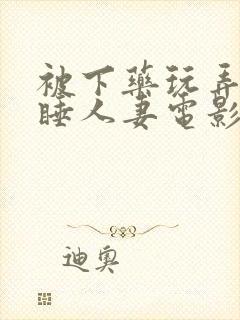 被下藥玩弄
睡人妻電影
迪奧